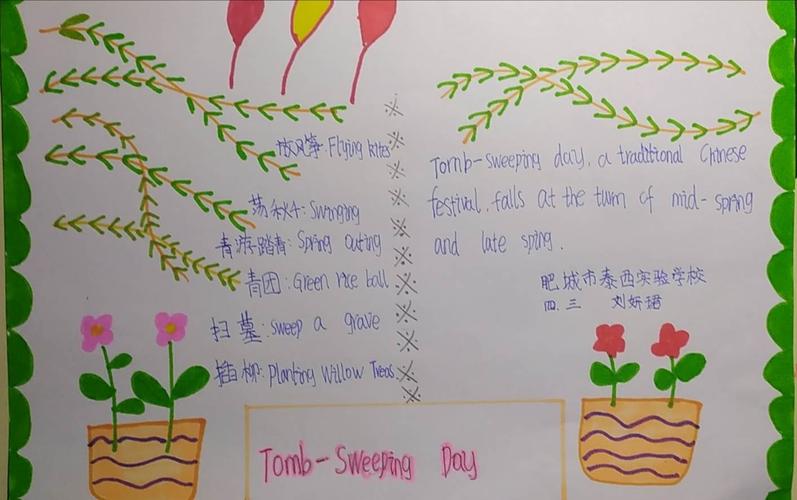 放风筝: Flying kites
荡秋千: Swinging
青游踏青: Spring outing
青团: Green rice ball
扫墓: sweep a grave
插柳: Planting Willow Trees
Tomb-sweeping day, a traditional Chinese
festival, falls at the turn of mid-spring
and late sping.
肥城市泰西实验学校
四.三 刘妍珺
Tomb-Sweeping Day